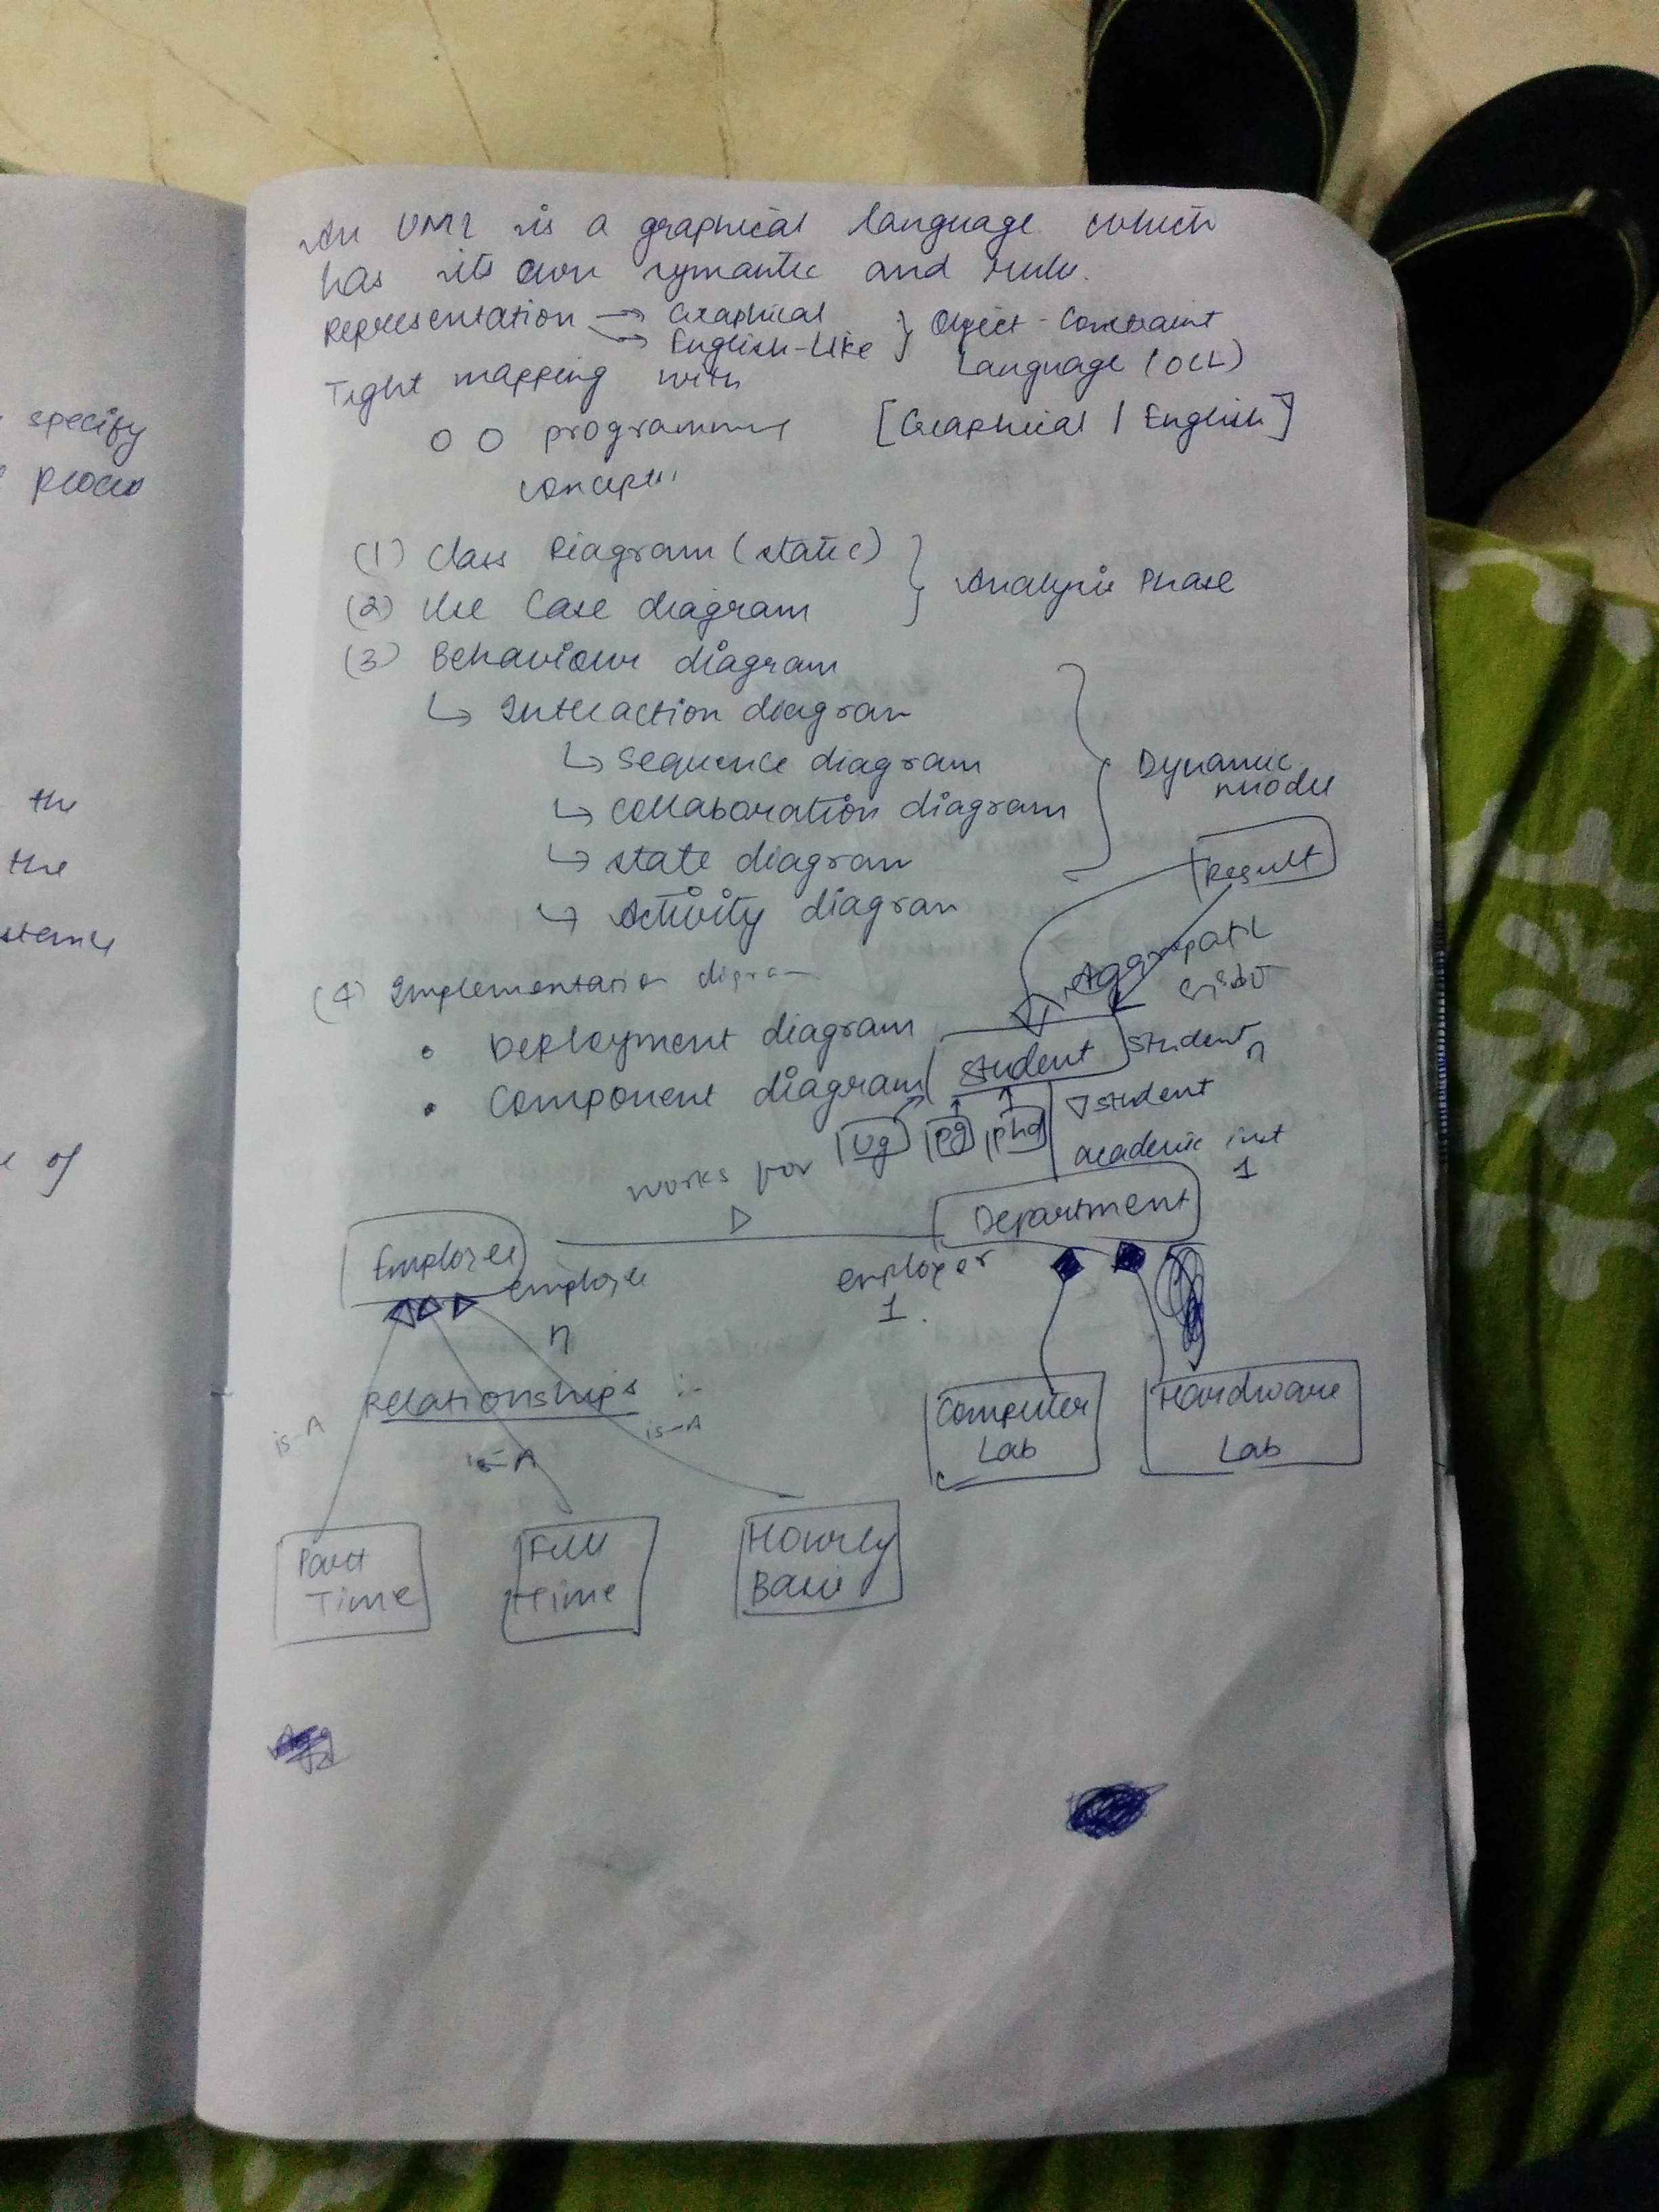 specify
process
the
the
of
An UML is a graphical language which
has its own symantic and rules.
Representation → Graphical
→ English-Like } Object-Constraint
Language (OCL)
Tight mapping with
O O programming
concepts
[Graphical / English]
(1) Class Diagram (static)
(2) Use Case diagram
} Analysis Phase
(3) Behaviour diagram
↳ Interaction diagram
↳ Sequence diagram
↳ Collaboration diagram
↳ State diagram
↳ Activity diagram
} Dynamic
model
Result
(4) Implementation digram
• Deployment diagram
• Component diagram
Student
Student
n
Ug
Pg
phd
▽ student
academic inst
1
works for
▷
Department
Employee
employee
n
employer
1
Relationships :-
is-A
is-A
is-A
Computer
Lab
Hardware
Lab
Part
Time
Full
time
Hourly
Basis